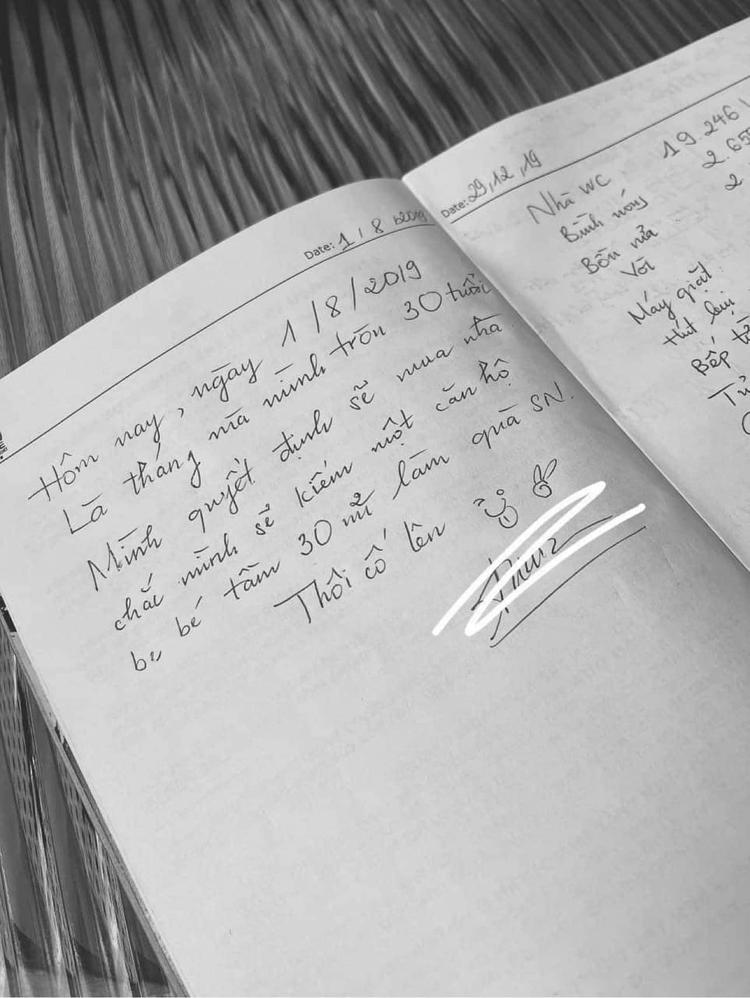 Date: 1 / 8 / 2019
Hôm nay, ngày 1/8/2019
Là tháng mà mình tròn 30 tuổi
Mình quyết định sẽ mua nhà
chắc mình sẽ kiếm một căn hộ
be bé tầm 30 m2 làm quà SN.
Thôi cố lên
Date: 29,12,19
Nhà WC 19.246
Bình nóng 2.65
Bồn rửa 2
Vòi
Máy giặt
Hút bụi
Bếp từ